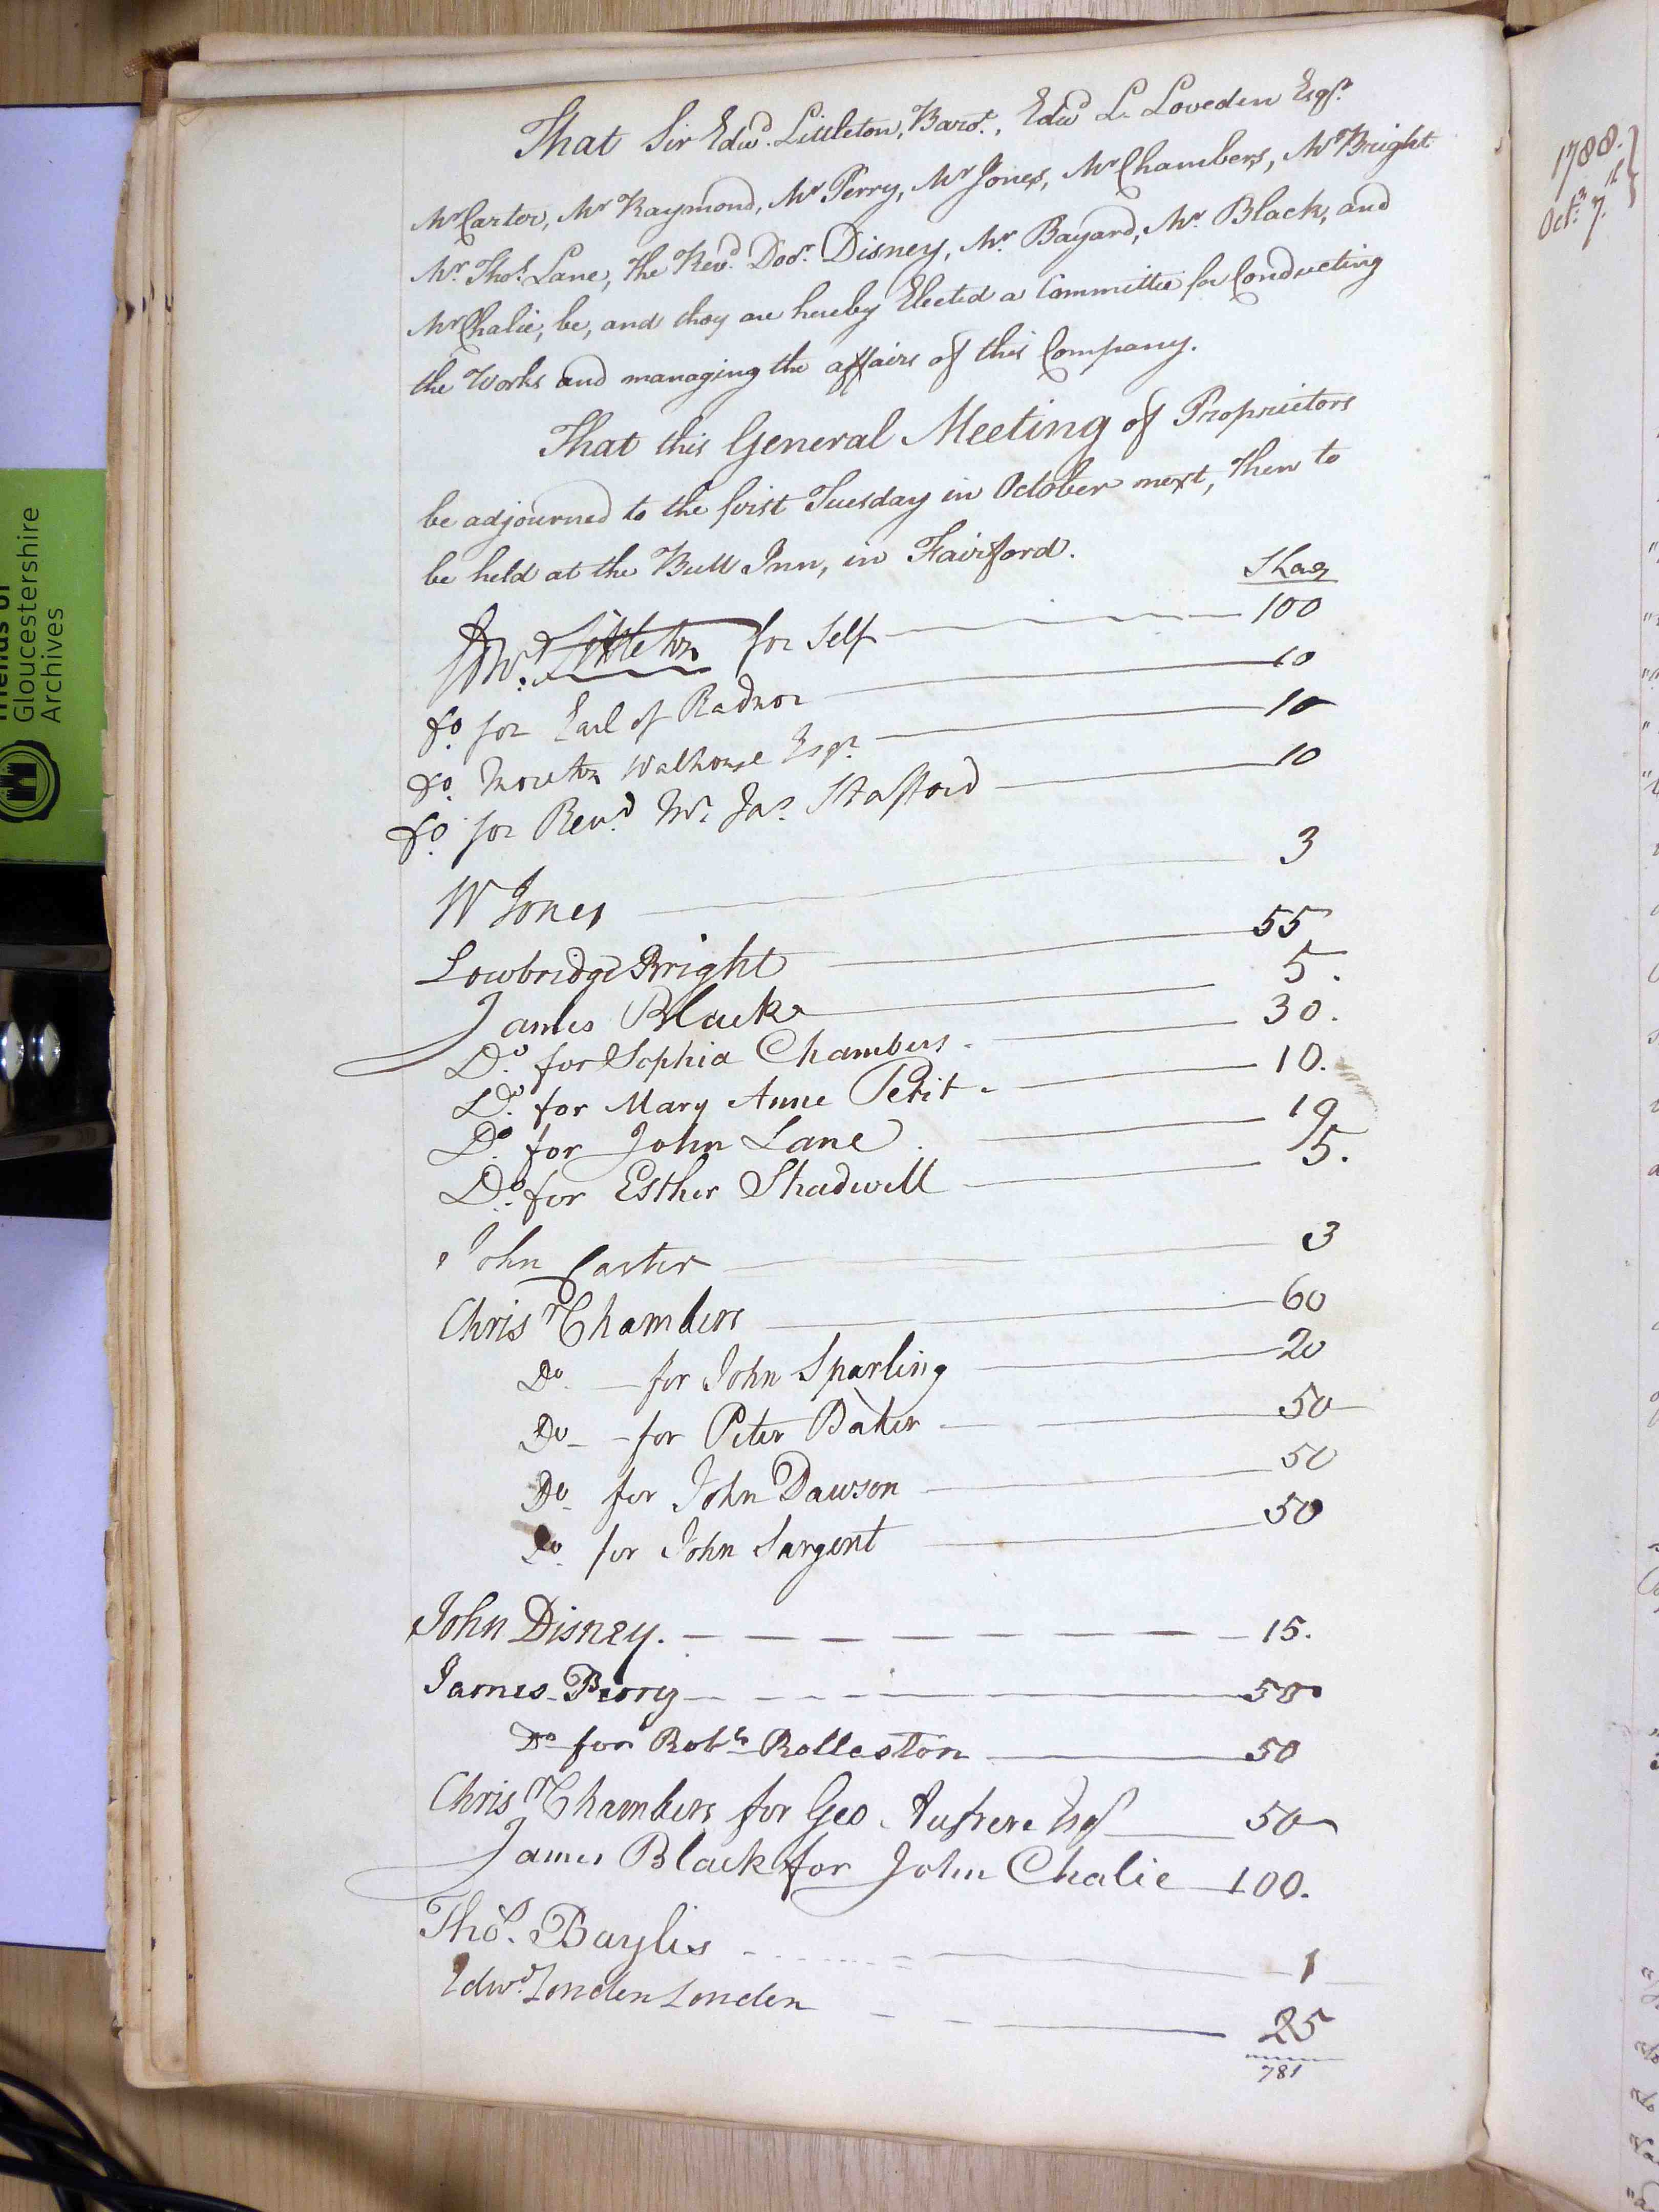 That Sir Edwd. Littleton, Barot., Edwd L. Loveden Esqr.
Mr Carter, Mr Raymond, Mr Perry, Mr Jones, Mr Chambers, Mr Bright
Mr. Thos. Lane, the Revd. Docr. Disney, Mr. Bayard, Mr. Black, and
Mr Chalie, be, and they are hereby Elected a Committee for Conducting
the Works and managing the affairs of this Company.
That this General Meeting of Proprietors
be adjourned to the first Tuesday in October next, then to
be held at the Bull Inn, in Fairford.
Shas
Edwd. Littleton for Self 100
Do. for Earl of Radnor 10
Do. Moreton Walhouse Esqr. 10
Do. for Revd. Mr. Jas. Stafford 10
W Jones 3
Lowbridge Bright 55
James Black 5.
Do. for Sophia Chambers. 30.
Do. for Mary Anne Petit. 10.
Do. for John Lane 19
Do. for Esther Shadwell 5.
John Carter 3
Chrisr Chambers 60
Do. for John Sparling 20
Do for Peter Baker 50
Do for John Dawson 50
Do. for John Sargent 50
John Disney. 15.
James Perry 50
Do for Robt. Rolleston 50
Chrisr Chambers for Geo Aufrere Esqr 50
James Black for John Chalie 100.
Thos. Baylis 1
Edwd. Loveden Loveden 25
781
1788.
Octr. 7.th
Friends of
Gloucestershire
Archives